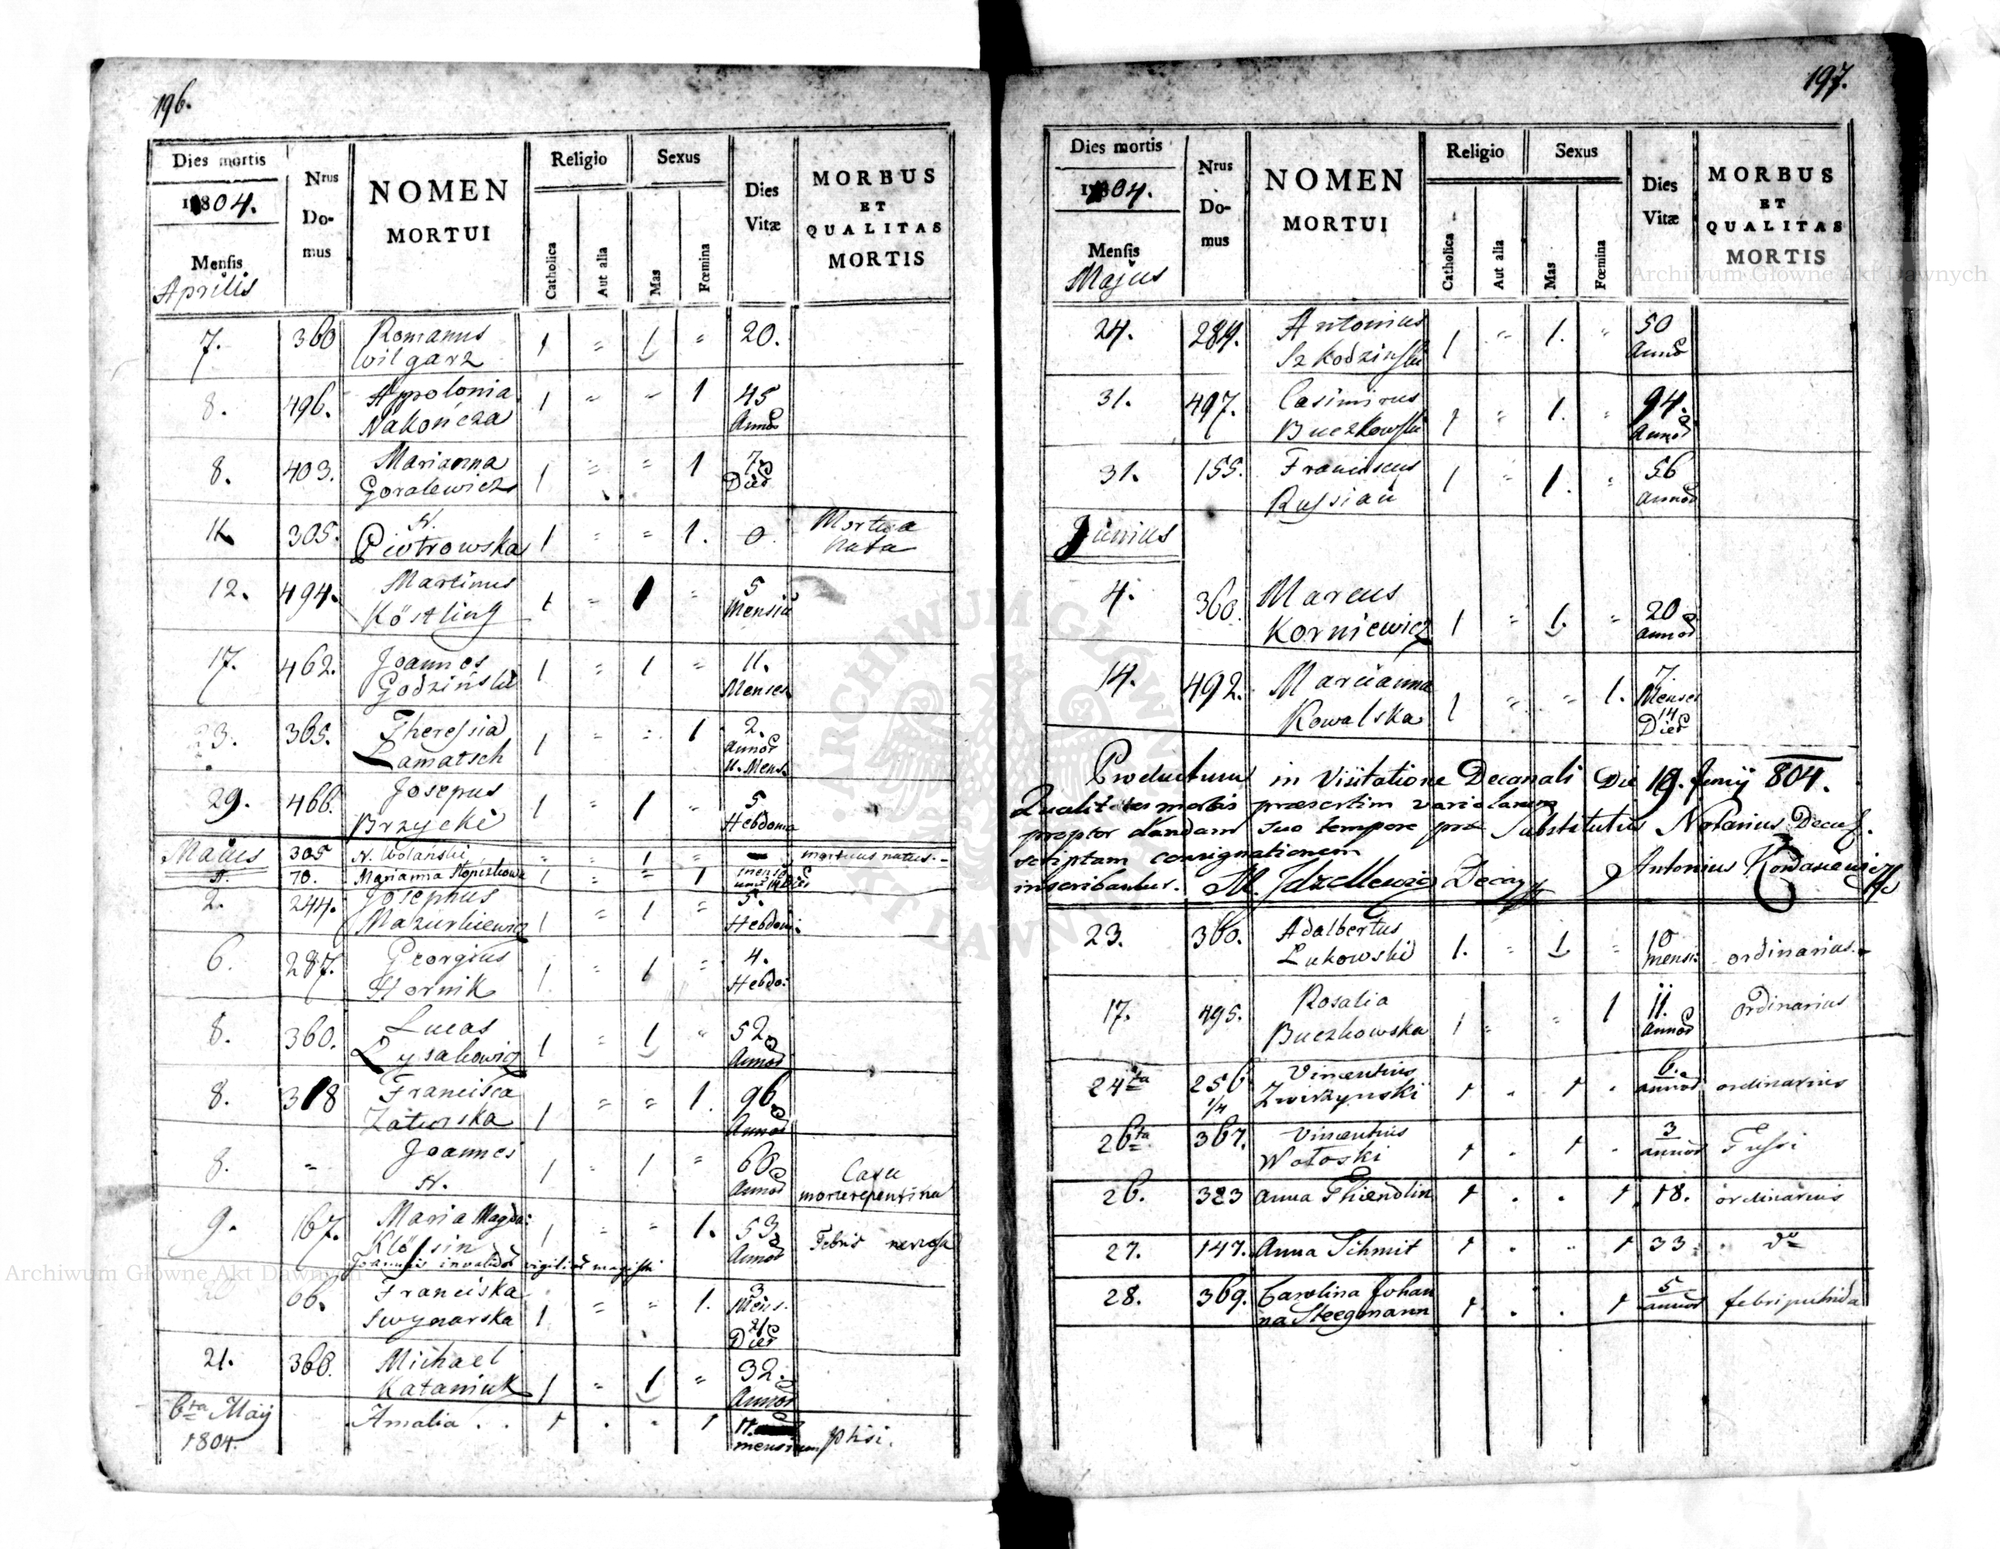 196.
Dies mortis
1804.
Mensis
Aprilis
Nrus Domus
NOMEN MORTUI
Religio
Catholica
Aut alia
Sexus
Mas
Fœmina
Dies Vitæ
MORBUS ET QUALITAS MORTIS
7. 360 Romanus Wilgarz 1 " 1 " 20.
8. 496. Appolonia Nakończa 1 " " 1 45 Annos
8. 403. Marianna Goralewicz 1 " " 1 7 Dies
11. 305. N. Piotrowska 1 " " 1. 0. Mortua nata
12. 494. Martinus Köstling 1 " 1 " 5 Mensiu
17. 462. Joannes Godziński 1 " 1 " 11. Menses
23. 365. Theressia Lamatsch 1 " " 1 2. Annos 11. Mens.
29. 466. Josepus Brzycki 1 " 1 " 5 Hebdoma
Maius 305 N. Wolański " " 1 " – mortuus natus.
70. Marianna 1 " " 1
2. 244. Josephus Mazurkiewicz 1 " 1 " 5. Hebdom:
6. 287. Georgius Hornik 1. " 1 " 4. Hebdo:
8. 360. Lucas Łysakowicz 1 " 1 " 52 Annos
8. 318 Francisca Zatorska 1 " " 1. 96. Annos
8. " Joannes N. 1 " 1 " 60 Annos Casu morte repentina
9. 167. Maria Magda: Klössin 1 " " 1. 53 Annos Febris nervosa
Joannis invalidos vigilias magistri
66. Franciska Swynarska 1 " " 1. 3 Mens. 21 Dies
21. 360. Michael Kataniuk 1 " 1 " 32. Annos
6ta Maij 1804. Amalia . . 1 . . 1 11. mensium phisi.
197.
Dies mortis
1804.
Mensis
Majus
Nrus Domus
NOMEN MORTUI
Religio
Catholica
Aut alia
Sexus
Mas
Fœmina
Dies Vitæ
MORBUS ET QUALITAS MORTIS
24. 284. Antonius Szkodziński 1 " 1. " 50 Annos
31. 497. Casimirus Buczkowski 1 " 1. " 94. Annos
31. 155. Franciscus Russian 1 " 1. " 56 Annos
Junius
4. 360. Marcus Korniewicz 1 " 1. " 20 annos
14. 492. Mariianna Kowalska 1 " " 1. 7 Menses 14 Dies
Productum in Visitatione Decanali Die 19. Junij 804.
Qualitates morbis præsertim variolarum
propter dandam suo tempore præ Substitutus Notarius Decaś.
scriptam consignationem
inscribantur. M. Decan Antonius
23. 360. Adalbertus Lukowski 1. " 1. " 10 mensi: ordinarius.
17. 495. Rosalia Buczkowska 1 " " 1 11. annos ordinarius
24ta 256 1/4 Vincentius Zwirzynski 1 . 1 . 6. annos ordinarius
26ta 367. Vincentius Wołoski 1 . 1 . 3 annos Tussi
26. 323 Anna Thiendlin 1 . . 1 18. ordinarius
27. 147. Anna Schmit 1 . . 1 33. do
28. 369. Carolina Johanna Steegmann 1 . . 1 5 annos febri putrida
Archiwum Główne Akt Dawnych
Archiwum Główne Akt Dawnych
ARCHIWUM GŁÓWNE AKT DAWNYCH